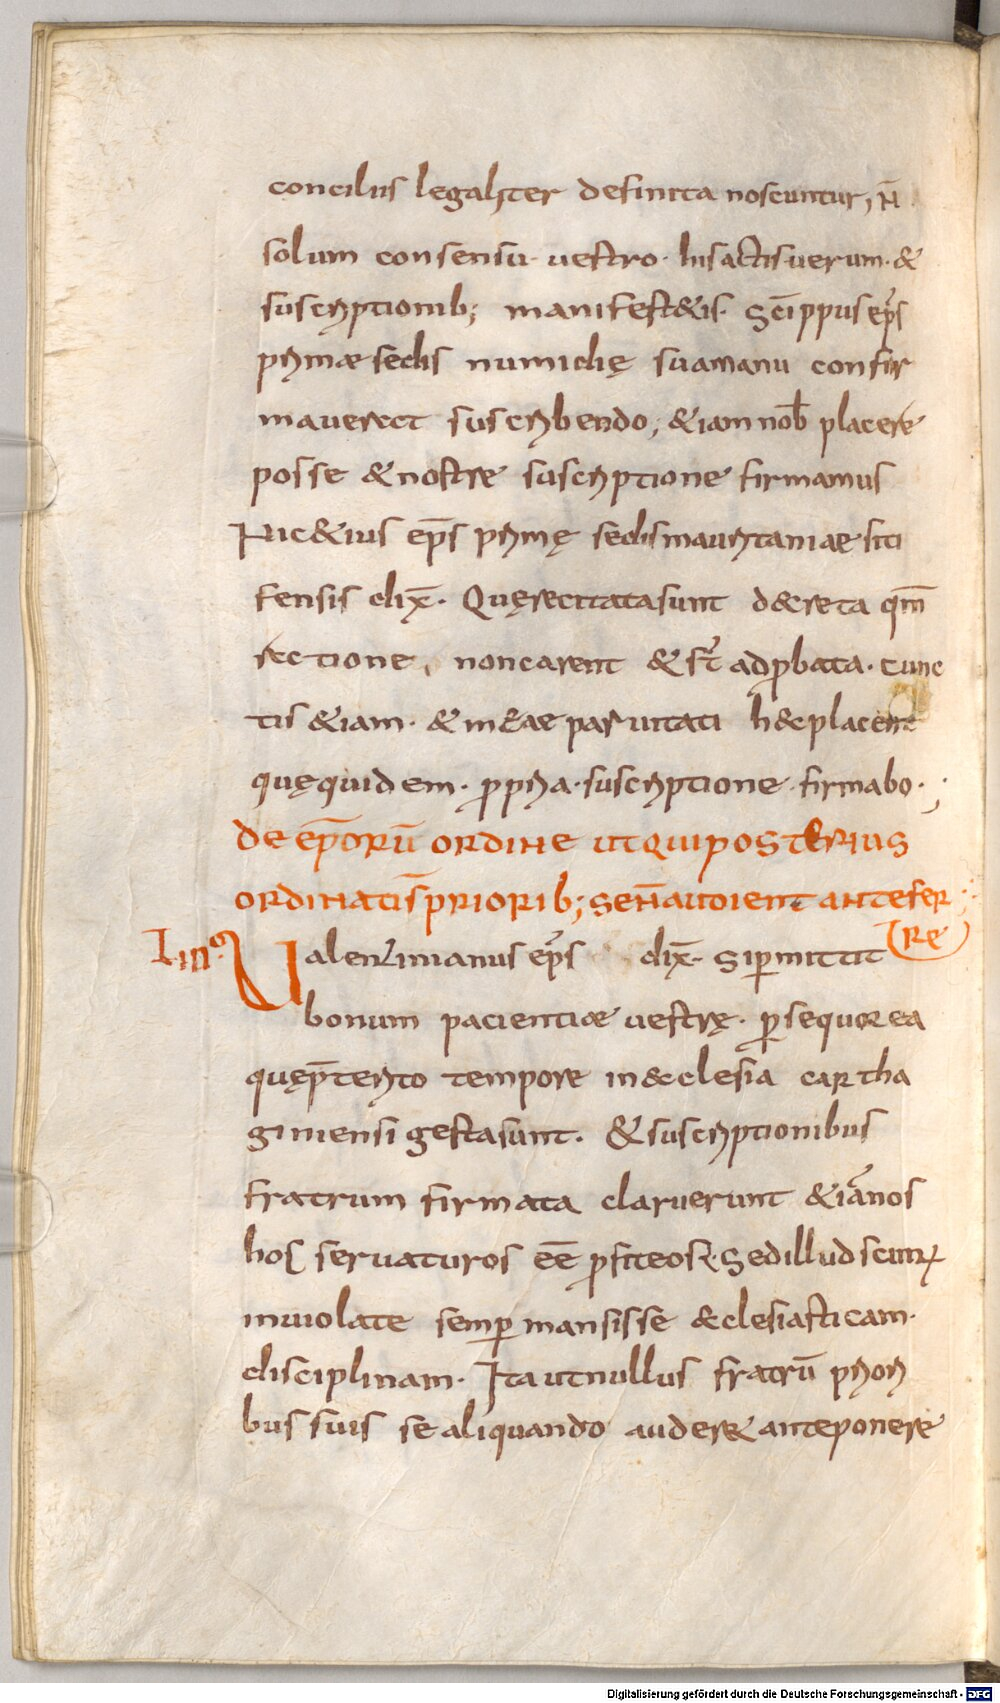 conciliis legaliter definita noscuntur, n̄
solum consensu· uestro· his actis· uerum· &
suscriptionib; manifest&is· Scīppus ep̄s
primae sedis numidię sua manu confir
mauerect suscribendo, &iam nob̄ placere
posse & nostre suscriptione firmamus
Nic&ius ep̄s primę sedis mauritaniae siti
fensis dix̄· Quę recitata sunt decreta qm̄
rectione, non carent & st̄ adprobata· cunc
tis &iam· & meae paruitati h&c placent
quę quidem· propria· suscriptione· firmabo·;
De ep̄orū ordine ut qui posterius
ordinati s̄ priorib; se n̄ audient antefer
re
IIII° Ualentinianus ep̄s dix̄· Si permittit
bonum pacientiae uestrę· persequor ea
quę p̄terito tempore in &cclesia cartha
giniensi gesta sunt· & suscriptionibus
fratrum firmata claruerunt & iā nos
hos seruaturos eē profiteor· Sed illud scimus
inuiolate semper mansisse &clesiasticam·
disciplinam· Ita ut nullus fratrū priori
bus suis se aliquando auder& anteponere
Digitalisierung gefördert durch die Deutsche Forschungsgemeinschaft - DFG